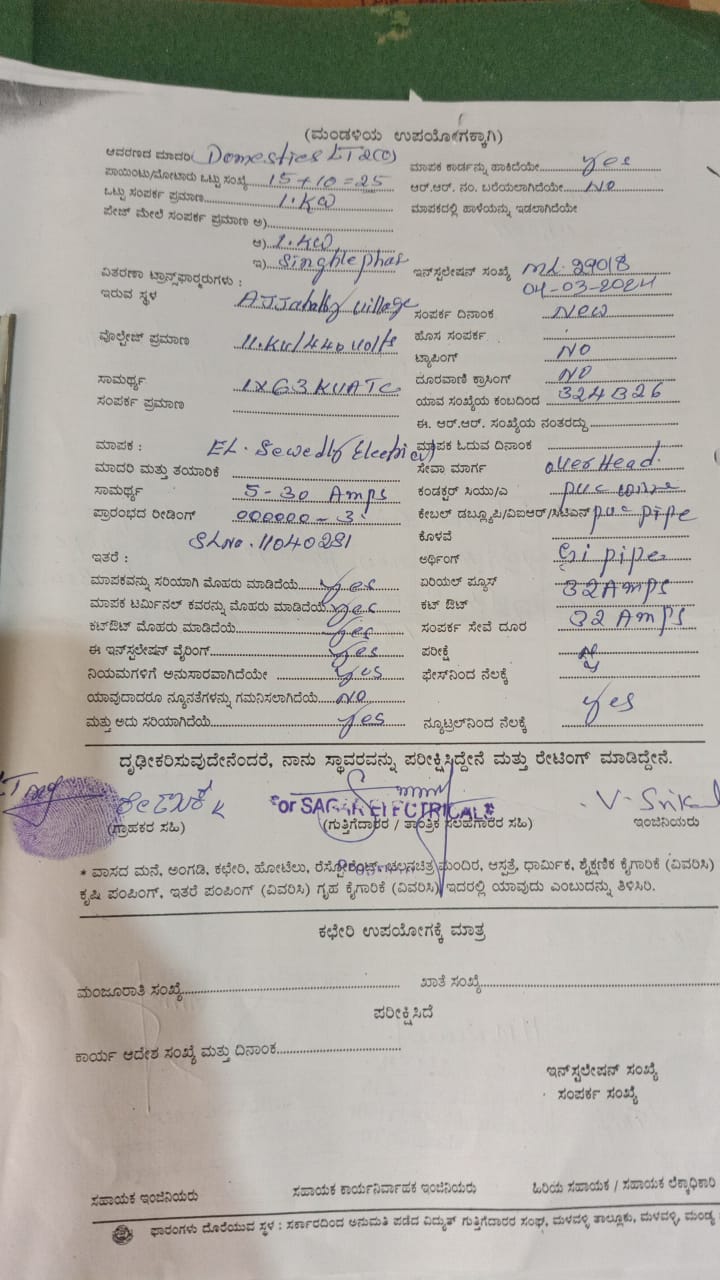 (ಮಂಡಳಿಯ ಉಪಯೋಗಕ್ಕಾಗಿ)
ಆವರಣದ ಮಾದರಿ Domestics LT2(C) ಮಾಪಕ ಕಾರ್ಡನ್ನು ಹಾಕಿದೆಯೇ yes
ಪಾಯಿಂಟು/ಮೋಟಾರು ಒಟ್ಟು ಸಂಖ್ಯೆ 15+10=25 ಆರ್.ಆರ್. ನಂ. ಬರೆಯಲಾಗಿದೆಯೇ NO
ಒಟ್ಟು ಸಂಪರ್ಕ ಪ್ರಮಾಣ 1.KW ಮಾಪಕದಲ್ಲಿ ಹಾಳೆಯನ್ನು ಇಡಲಾಗಿದೆಯೇ
ಪೇಜ್ ಮೇಲೆ ಸಂಪರ್ಕ ಪ್ರಮಾಣ ಅ)
ಆ) 1.KW
ಇ) Singhle phas ಇನ್‌ಸ್ಟಲೇಷನ್ ಸಂಖ್ಯೆ ML.29018
ವಿತರಣಾ ಟ್ರಾನ್ಸ್‌ಫಾರ್ಮರುಗಳು : 04-03-2024
ಇರುವ ಸ್ಥಳ village ಸಂಪರ್ಕ ದಿನಾಂಕ New
ವೊಲ್ಟೇಜ್ ಪ್ರಮಾಣ 11.KV/440 volts ಹೊಸ ಸಂಪರ್ಕ
ಟ್ಯಾಪಿಂಗ್ NO
ಸಾಮರ್ಥ್ಯ 1X63 KVATC ದೂರವಾಣಿ ಕ್ರಾಸಿಂಗ್ NO
ಸಂಪರ್ಕ ಪ್ರಮಾಣ ಯಾವ ಸಂಖ್ಯೆಯ ಕಂಬದಿಂದ 324B26
ಈ. ಆರ್.ಆರ್. ಸಂಖ್ಯೆಯ ನಂತರದ್ದು
ಮಾಪಕ : EL. Sewedly Electric ಮಾಪಕ ಓದುವ ದಿನಾಂಕ
ಮಾದರಿ ಮತ್ತು ತಯಾರಿಕೆ ಸೇವಾ ಮಾರ್ಗ over Head.
ಸಾಮರ್ಥ್ಯ 5-30 Amps ಕಂಡಕ್ಟರ್ ಸಿಯು/ಎ puc
ಪ್ರಾರಂಭದ ರೀಡಿಂಗ್ 000000-3 ಕೇಬಲ್ ಡಬ್ಲ್ಯೂಪಿ/ವಿಐಆರ್/ಸಿಟಿಎಸ್ puc pipe
SLNo. 11040281 ಕೊಳವೆ
ಇತರೆ : ಅರ್ಥಿಂಗ್ Gi pipe
ಮಾಪಕವನ್ನು ಸರಿಯಾಗಿ ಮೊಹರು ಮಾಡಿದೆಯೆ yes ಏರಿಯಲ್ ಫ್ಯೂಸ್ 32Amps
ಮಾಪಕ ಟರ್ಮಿನಲ್ ಕವರನ್ನು ಮೊಹರು ಮಾಡಿದೆಯೆ yes ಕಟ್ ಔಟ್ 32 Amps
ಕಟ್‌ಔಟ್ ಮೊಹರು ಮಾಡಿದೆಯೆ yes ಸಂಪರ್ಕ ಸೇವೆ ದೂರ
ಈ ಇನ್‌ಸ್ಟಲೇಷನ್ ವೈರಿಂಗ್ yes ಪರೀಕ್ಷೆ
ನಿಯಮಗಳಿಗೆ ಅನುಸಾರವಾಗಿದೆಯೇ yes ಫೇಸ್‌ನಿಂದ ನೆಲಕ್ಕೆ
ಯಾವುದಾದರೂ ನ್ಯೂನತೆಗಳನ್ನು ಗಮನಿಸಲಾಗಿದೆಯೆ NO
ಮತ್ತು ಅದು ಸರಿಯಾಗಿದೆಯೆ yes ನ್ಯೂಟ್ರಲ್‌ನಿಂದ ನೆಲಕ್ಕೆ yes
ದೃಢೀಕರಿಸುವುದೇನೆಂದರೆ, ನಾನು ಸ್ಥಾವರವನ್ನು ಪರೀಕ್ಷಿಸಿದ್ದೇನೆ ಮತ್ತು ರೇಟಿಂಗ್ ಮಾಡಿದ್ದೇನೆ.
or SAGAR ELECTRICALS
(ಗ್ರಾಹಕರ ಸಹಿ) (ಗುತ್ತಿಗೆದಾರರ / ತಾಂತ್ರಿಕ ಸಲಹಗಾರರ ಸಹಿ) ಇಂಜಿನಿಯರು
* ವಾಸದ ಮನೆ, ಅಂಗಡಿ, ಕಛೇರಿ, ಹೋಟೆಲು, ರೆಸ್ಟೋರೆಂಟ್, ಚಲನಚಿತ್ರ ಮಂದಿರ, ಆಸ್ಪತ್ರೆ, ಧಾರ್ಮಿಕ, ಶೈಕ್ಷಣಿಕ ಕೈಗಾರಿಕೆ (ವಿವರಿಸಿ)
ಕೃಷಿ ಪಂಪಿಂಗ್, ಇತರೆ ಪಂಪಿಂಗ್ (ವಿವರಿಸಿ) ಗೃಹ ಕೈಗಾರಿಕೆ (ವಿವರಿಸಿ) ಇದರಲ್ಲಿ ಯಾವುದು ಎಂಬುದನ್ನು ತಿಳಿಸಿರಿ.
ಕಛೇರಿ ಉಪಯೋಗಕ್ಕೆ ಮಾತ್ರ
ಮಂಜೂರಾತಿ ಸಂಖ್ಯೆ ಖಾತೆ ಸಂಖ್ಯೆ
ಪರೀಕ್ಷಿಸಿದೆ
ಕಾರ್ಯ ಆದೇಶ ಸಂಖ್ಯೆ ಮತ್ತು ದಿನಾಂಕ
ಇನ್‌ಸ್ಟಲೇಷನ್ ಸಂಖ್ಯೆ
ಸಂಪರ್ಕ ಸಂಖ್ಯೆ
ಸಹಾಯಕ ಇಂಜಿನಿಯರು ಸಹಾಯಕ ಕಾರ್ಯನಿರ್ವಾಹಕ ಇಂಜಿನಿಯರು ಹಿರಿಯ ಸಹಾಯಕ / ಸಹಾಯಕ ಲೆಕ್ಕಾಧಿಕಾರಿ
ಫಾರಂಗಳು ದೊರೆಯುವ ಸ್ಥಳ : ಸರ್ಕಾರದಿಂದ ಅನುಮತಿ ಪಡೆದ ವಿದ್ಯುತ್ ಗುತ್ತಿಗೆದಾರರ ಸಂಘ, ಮಳವಳ್ಳಿ ತಾಲ್ಲೂಕು, ಮಳವಳ್ಳಿ, ಮಂಡ್ಯ